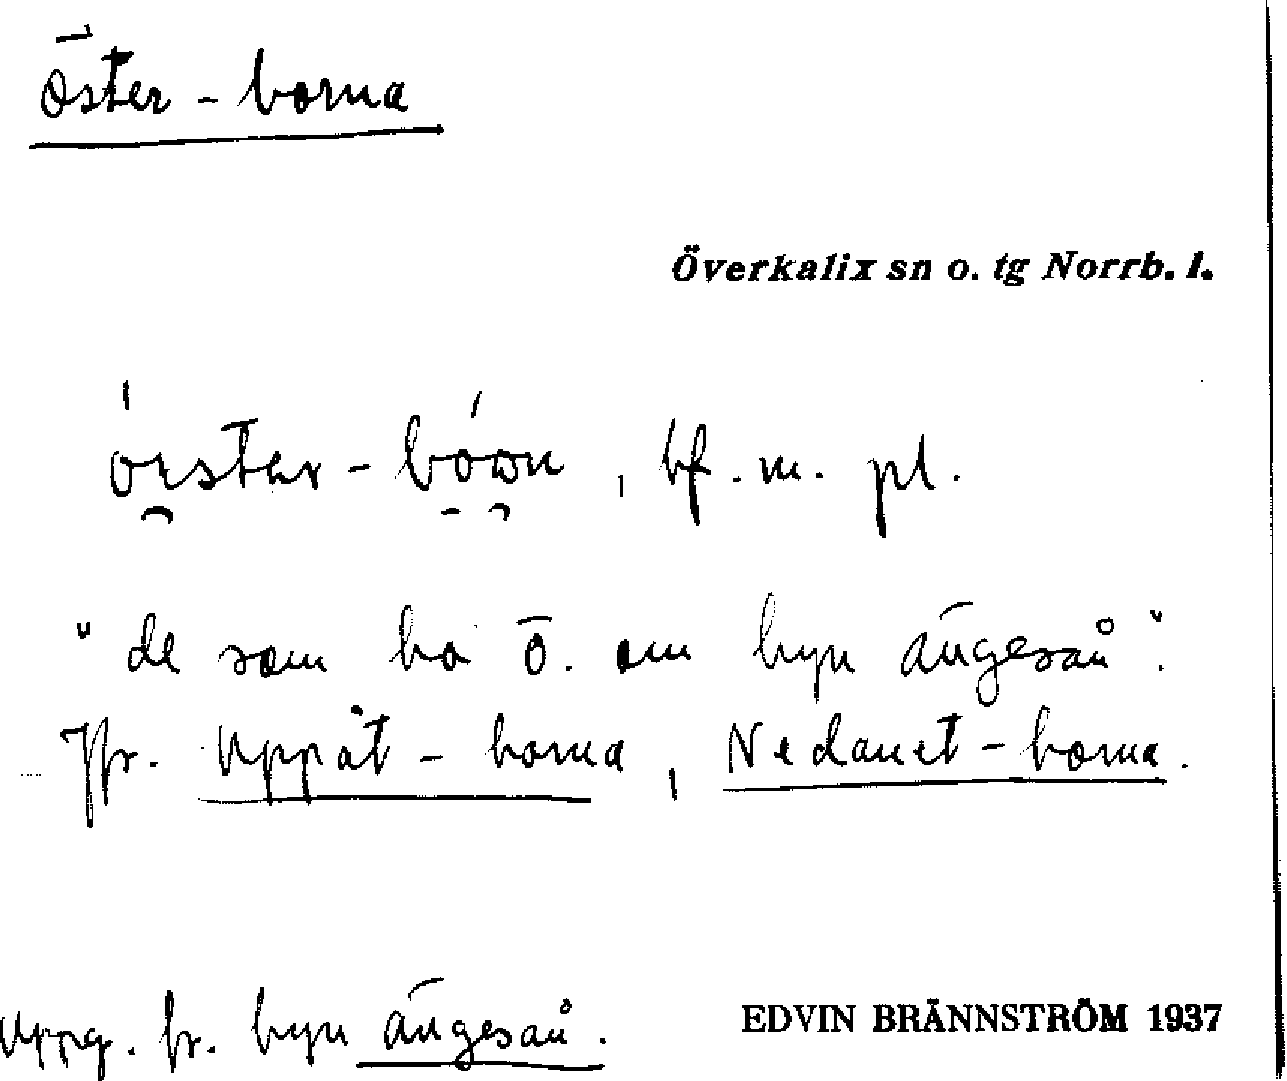 Öster-borna
Överkalix sn o. tg Norrb. l.
, bf. m. pl.
"de som bo Ö. om byn Ängesån".
Jfr. Uppåt-borna, Nedanet-borna.
Uppg. fr. byn Ängesån.
EDVIN BRÄNNSTRÖM 1937